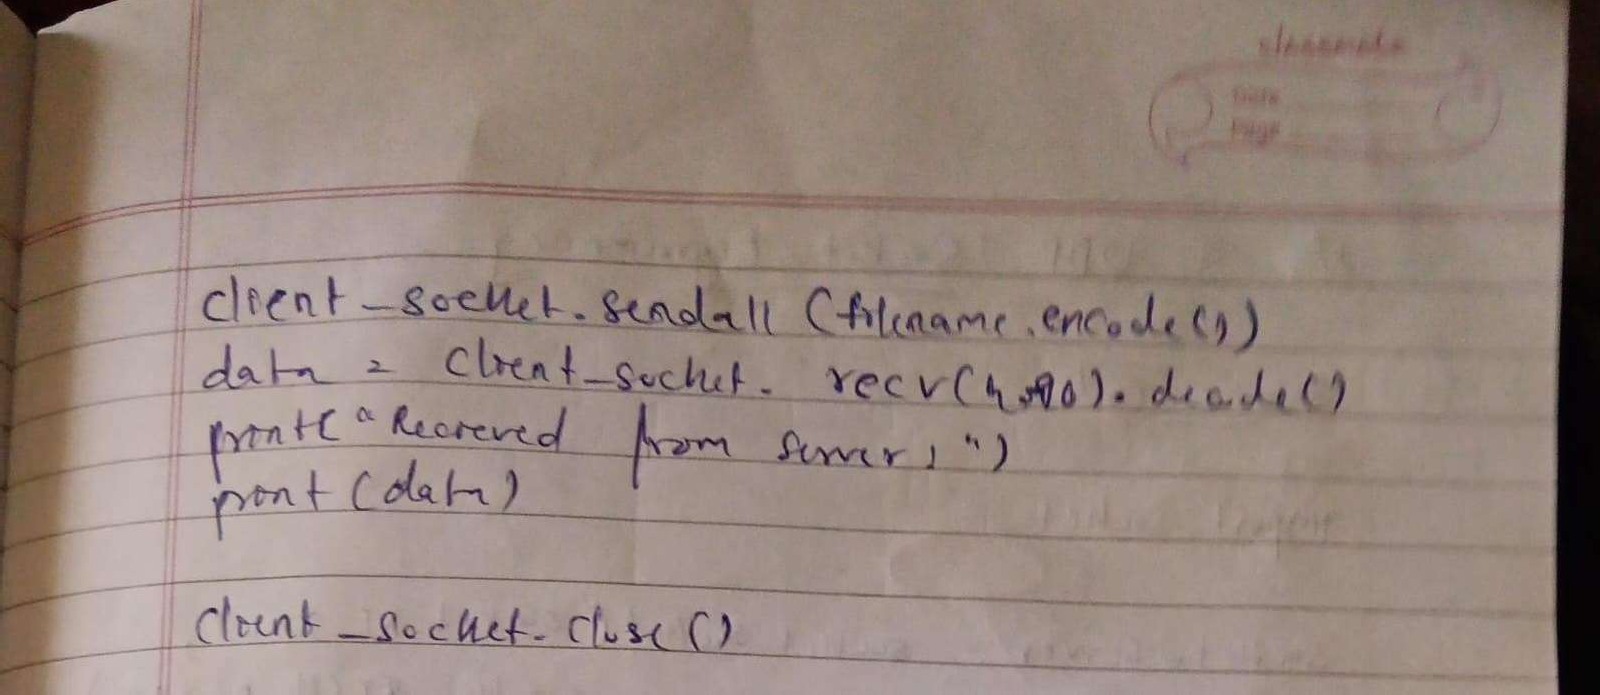 classmate
Date
Page
client_socket.sendall (filename.encode())
data = client_socket. recv(4096).decode()
print("Received from server:")
print(data)
client_socket.close()